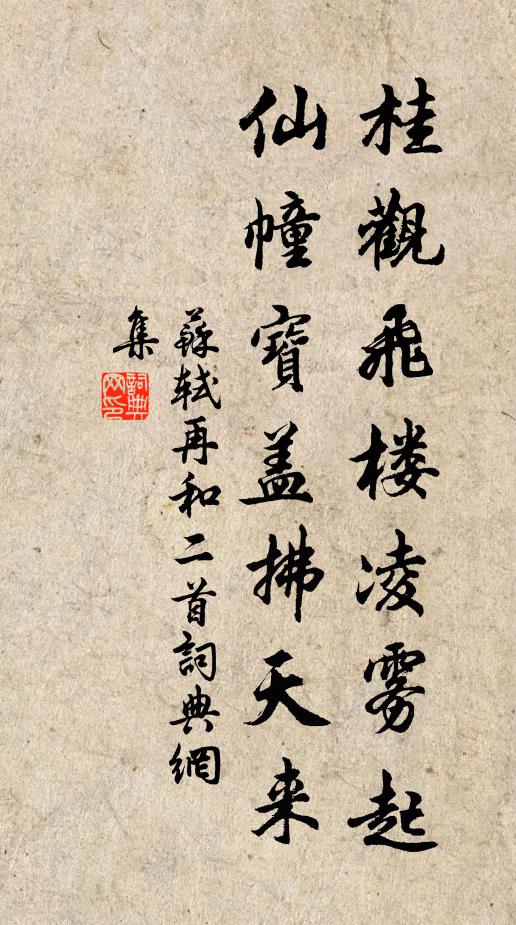 桂觀飛楼凌雾起
仙幢寶盖拂天来
蘇軾再和二首詞典網
集
詞典
网印